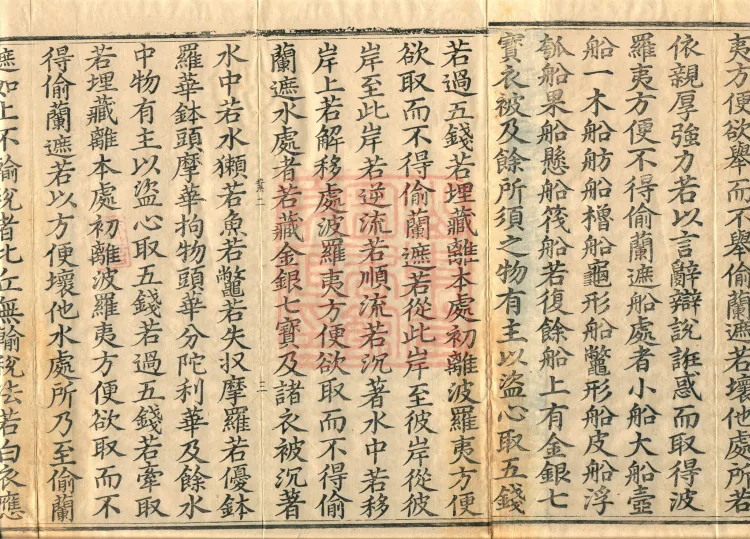 夷方便欲舉而不舉偷蘭遮若壞他處所若
依親厚強力若以言辭辯説誑惑而取得波
羅夷方便不得偷蘭遮船處者小船大船壺
船一木船舫船櫓船龜形船鼈形船皮船浮
瓠船果船懸船筏船若復餘船上有金銀七
寶衣被及餘所須之物有主以盜心取五錢
若過五錢若埋藏離本處初離波羅夷方便
欲取而不得偷蘭遮若從此岸至彼岸從彼
岸至此岸若逆流若順流若沉著水中若移
岸上若解移處波羅夷方便欲取而不得偷
蘭遮水處者若藏金銀七寶及諸衣被沉著
水中若水獺若魚若鼈若失収摩羅若優鉢
羅華鉢頭摩華拘物頭華分陀利華及餘水
中物有主以盜心取五錢若過五錢若牽取
若埋藏離本處初離波羅夷方便欲取而不
得偷蘭遮若以方便壞他水處所乃至偷蘭
遮如上不輸税者比丘無輸税法若白衣應